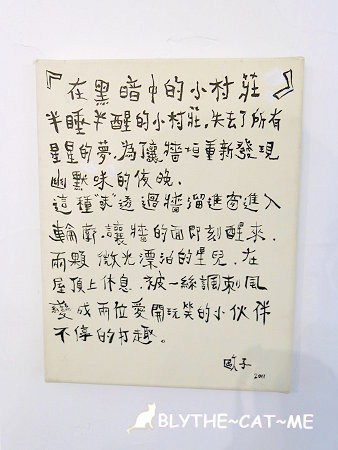 『在黑暗中的小村莊』
半睡半醒的小村莊,失去了所有
星星的夢,為了讓牆垣重新發現
幽默味的夜晚,
這種"求"透過牆溜進窗進入
輪廓,讓牆的面即刻醒來,
兩顆微光漂泊的星兒,在
屋頂上休息,被一絲諷刺風
變成兩位愛開玩笑的小伙伴
不停的打趣。
歐子
2011
BLYTHE~CAT~ME